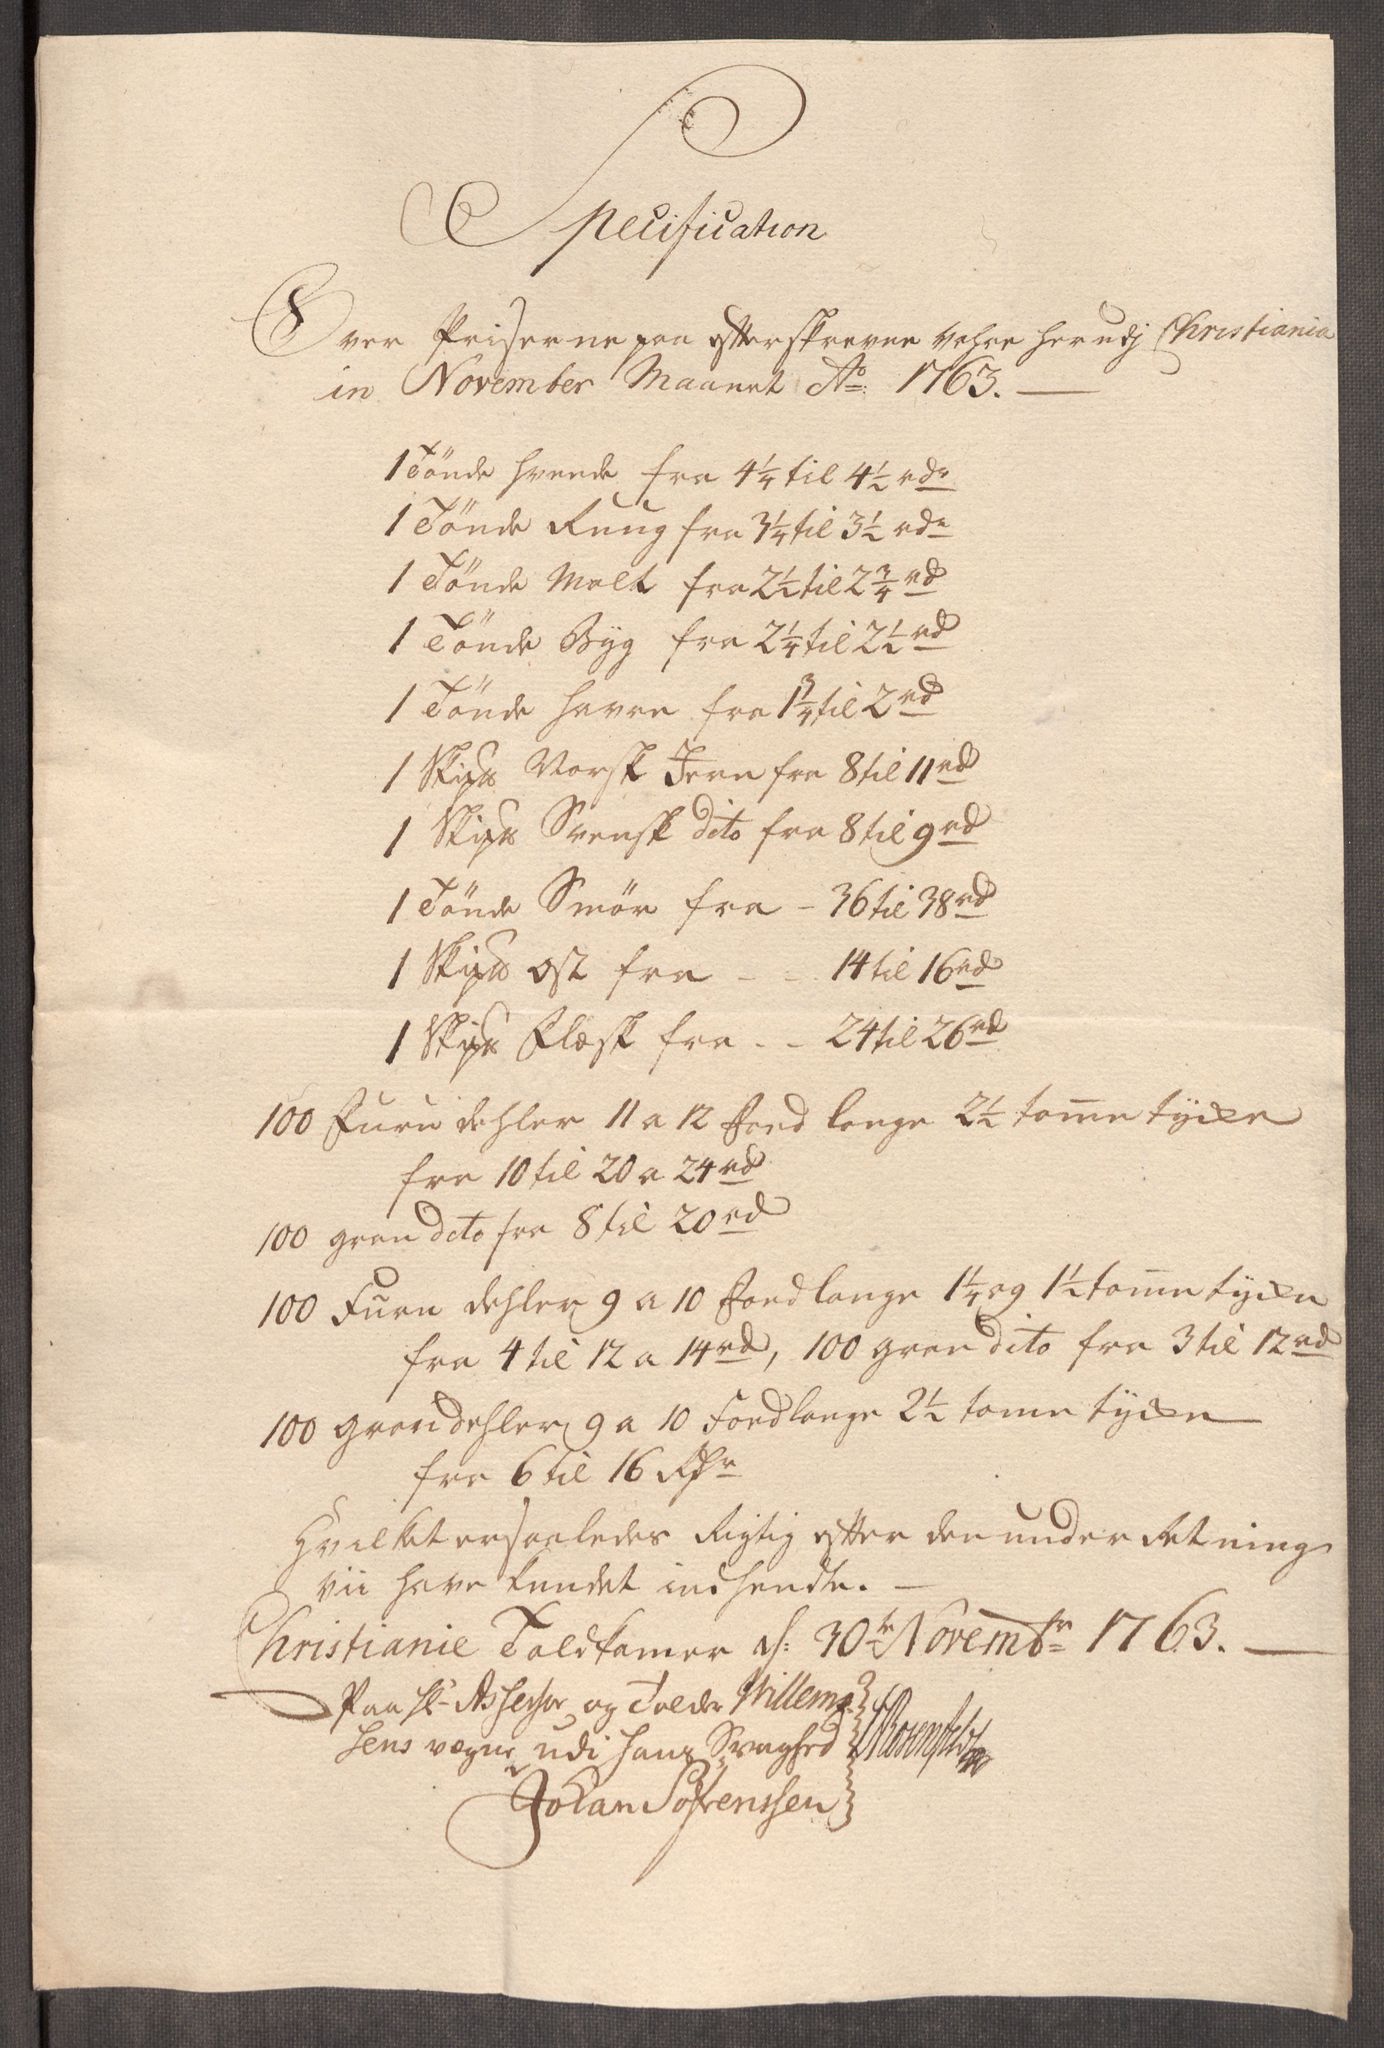 Specification
Over Priserne paa efterskrevne vahre her udj Christiania
in November Maanet Ao: 1763.
1 Tönde hvede fra 4¼ til 4½ rdr
1 Tönde Ruug fra 3¼ til 3½ rdr
1 Tönde Malt fra 2½ til 2¾ rd
1 Tönde Byg fra 2¼ til 2½ rd
1 Tönde havre fra 1¾ til 2 rd
1 Skipd Norsk Jern fra 8 til 11 rd
1 Skipd Svensk dito fra 8 til 9 rd
1 Tönde Smör fra - 36 til 38 rd
1 Skipd Ost fra - - 14 til 16 rd
1 Skipd Flesk fra - - 24 til 26 rd
100 Furu dehler 11 a 12 foed lange 2½ tomme tycke
fra 10 til 20 a 24 rd
100 gran dito fra 8 til 20 rd
100 Furu dehler 9 a 10 foed lange 1¼ og 1½ tomme tycke
fra 4 til 12 a 14 rd, 100 gran dito fra 3 til 12 rd
100 gran dehler 9 a 10 Foed lange 2½ tome tycke
fra 6 til 16 Rdr
Hvilket er saaledes Rigtig efter den underretning
vii have kundet indhendte.
Christianie Toldkamer d: 30te Novembr 1763.
Paa Hr Assessor og Tolder Willem-
sens vegne, udi hans Svaghed
NRosenfeldt
Johan Sørenssen